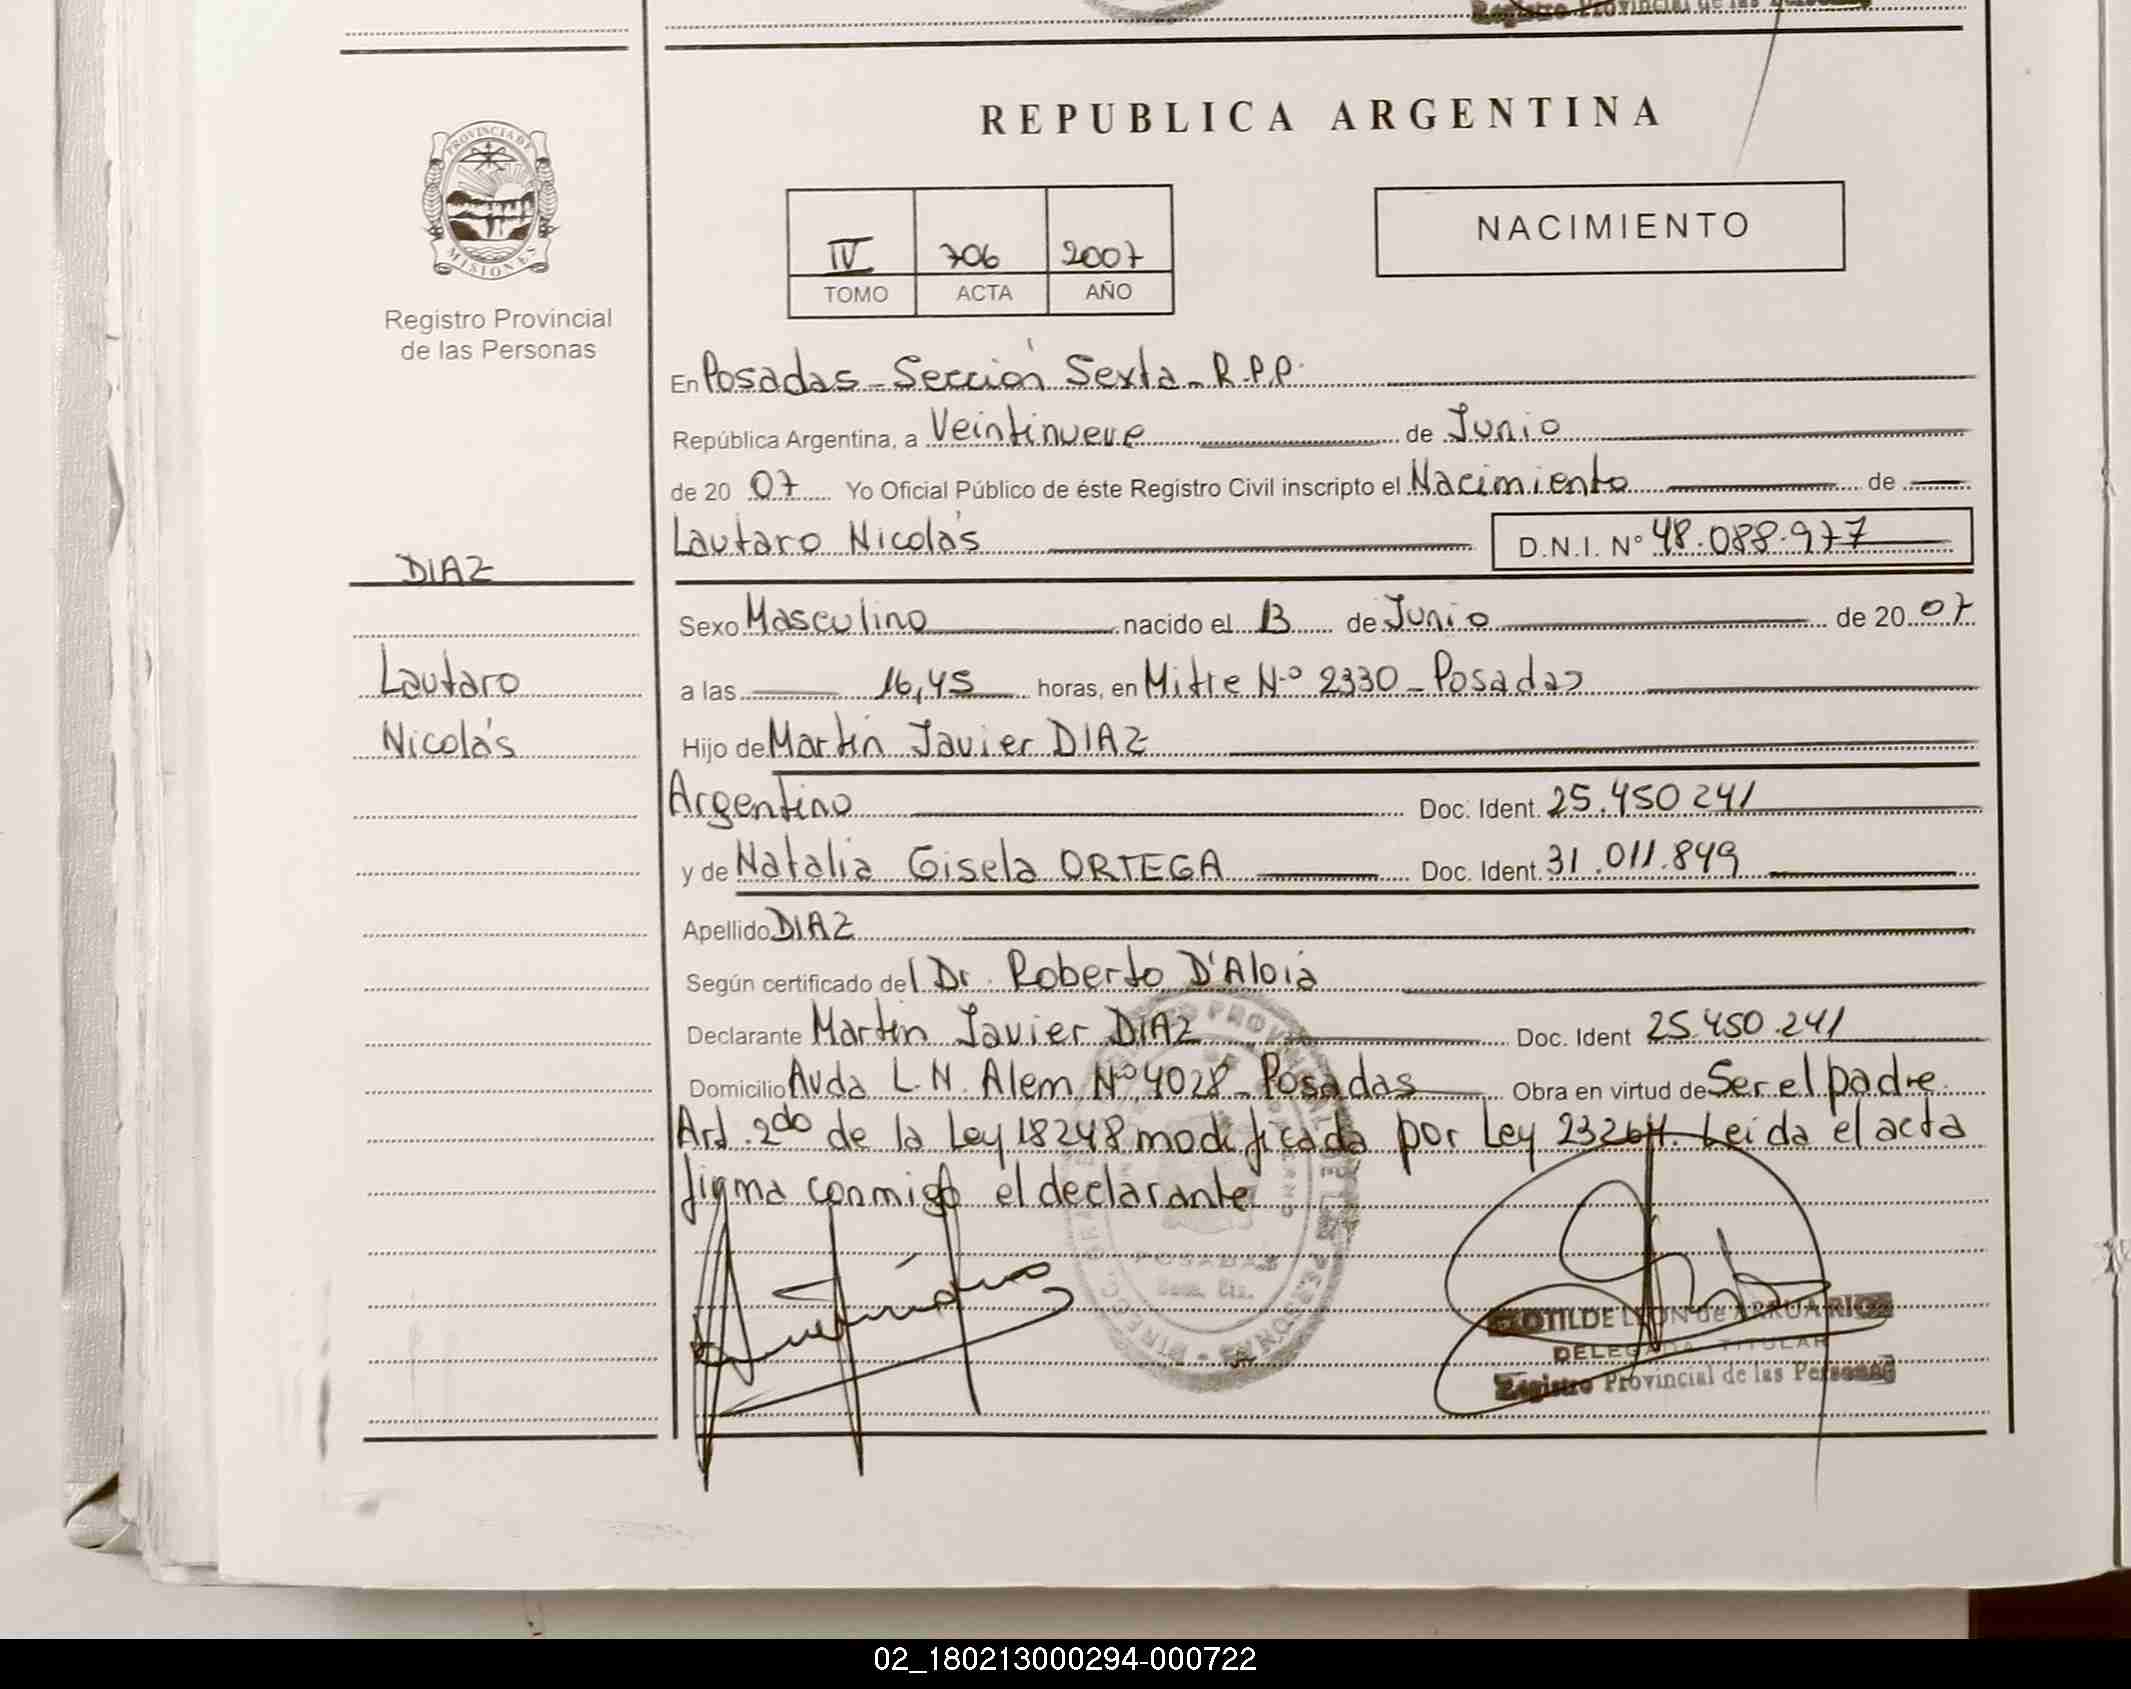 Registro Provincial de las Personas
PROVINCIA DE
MISIONES
Registro Provincial
de las Personas
DIAZ
Lautaro
Nicolás
REPUBLICA ARGENTINA
IV 706 2007
TOMO ACTA AÑO
NACIMIENTO
En Posadas - Sección Sexta - R.P.P.
República Argentina, a Veintinueve de Junio
de 20 07 Yo Oficial Público de éste Registro Civil inscripto el Nacimiento de
Lautaro Nicolás D.N.I. N° 48.088.977
Sexo Masculino nacido el 13 de Junio de 20 07
a las 16,45 horas, en Mitre N° 2330 - Posadas
Hijo de Martín Javier DIAZ
Argentino Doc. Ident. 25.450 241
y de Natalia Gisela ORTEGA Doc. Ident. 31.011.849
Apellido DIAZ
Según certificado del Dr. Roberto D'Aloia
Declarante Martin Javier DIAZ Doc. Ident 25.450.241
Domicilio Avda L.N. Alem N° 4028 - Posadas Obra en virtud de Ser el padre
Art. 2do de la Ley 18248 modificada por Ley 23264. Leida el acta
figma conmigo el declarante
POSADAS
CLOTILDE LEON de ARRUA RIOS
DELEGADA TITULAR
Registro Provincial de las Personas
02_180213000294-000722